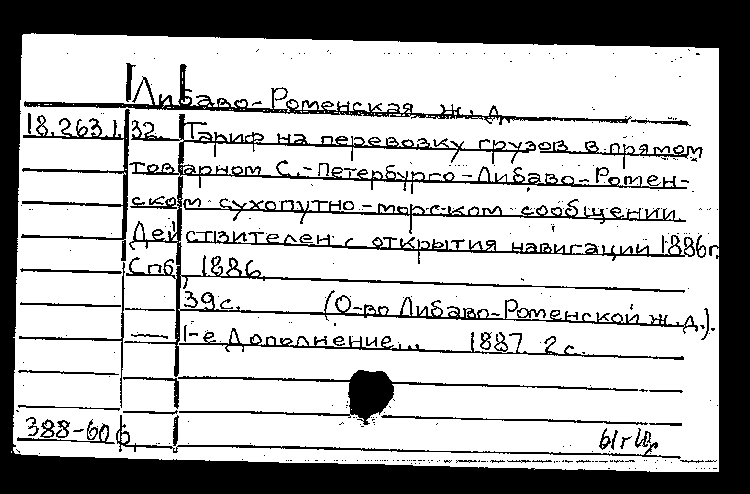 Либаво-Роменская ж. д.
18.263.1.32. Тариф на перевозку грузов в прямом
товарном С.-Петербурго-Либаво-Ромен-
ском сухопутно-морском сообщении.
Действителен с открытия навигации 1886 г.
Спб, 1886.
39 с. (О-во Либаво-Роменской ж. д.).
— 1-е Дополнение... 1887. 2 с.
388-60 б.